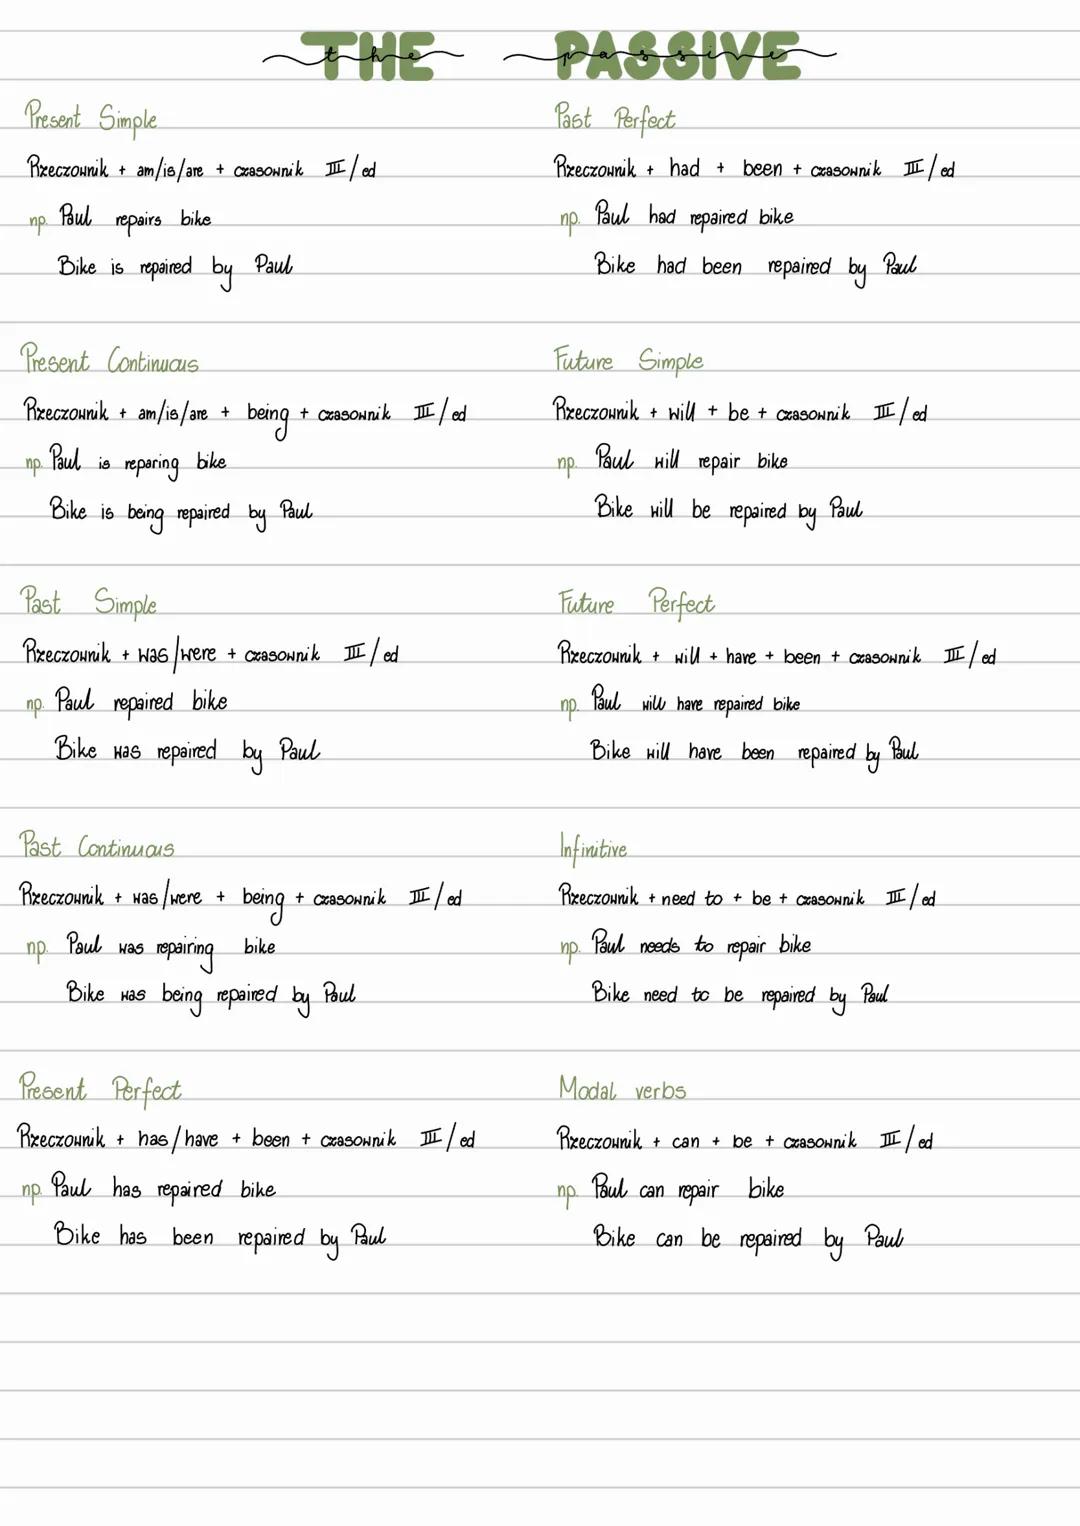 THE PASSIVE
the passive
Present Simple
Rzeczownik + am/is/are + czasownik III/ed
np. Paul repairs bike
Bike is repaired by Paul
Present Continuous
Rzeczownik + am/is/are + being + czasownik III/ed
np. Paul is reparing bike
Bike is being repaired by Paul
Past Simple
Rzeczownik + was/were + czasownik III/ed
np. Paul repaired bike
Bike was repaired by Paul
Past Continuous
Rzeczownik + was/were + being + czasownik III/ed
np. Paul was repairing bike
Bike was being repaired by Paul
Present Perfect
Rzeczownik + has/have + been + czasownik III/ed
np. Paul has repaired bike
Bike has been repaired by Paul
Past Perfect
Rzeczownik + had + been + czasownik III/ed
np. Paul had repaired bike
Bike had been repaired by Paul
Future Simple
Rzeczownik + will + be + czasownik III/ed
np. Paul will repair bike
Bike will be repaired by Paul
Future Perfect
Rzeczownik + will + have + been + czasownik III/ed
np. Paul will have repaired bike
Bike will have been repaired by Paul
Infinitive
Rzeczownik + need to + be + czasownik III/ed
np. Paul needs to repair bike
Bike need to be repaired by Paul
Modal verbs
Rzeczownik + can + be + czasownik III/ed
np. Paul can repair bike
Bike can be repaired by Paul